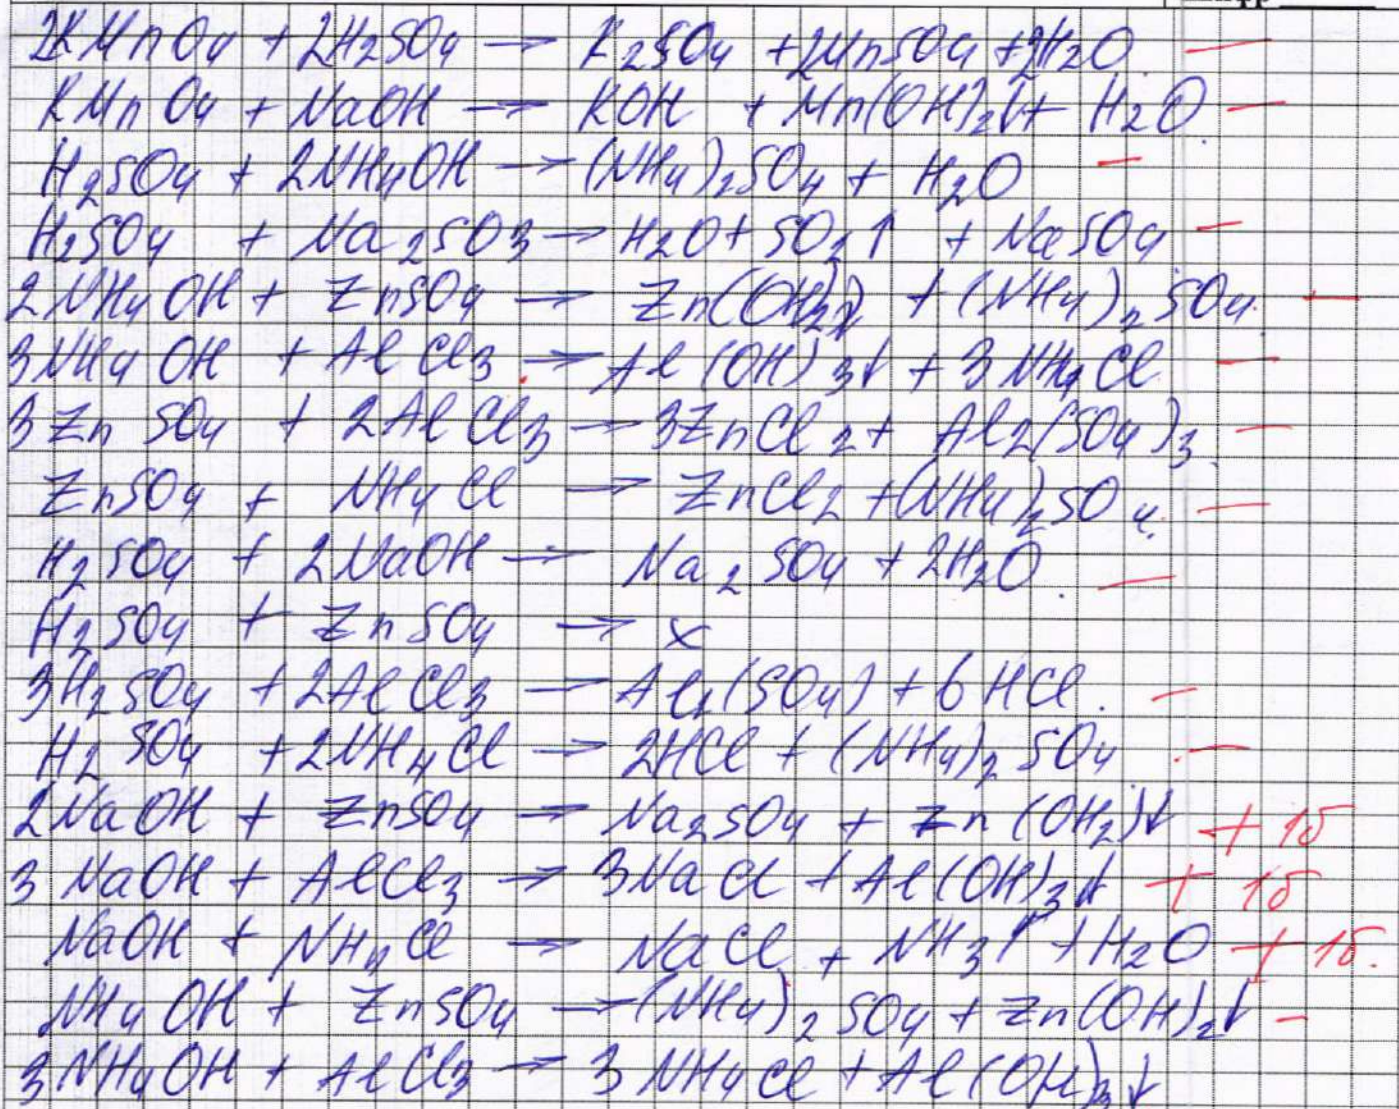 2KMnO4 + 2H2SO4 → K2SO4 + 2MnSO4 + 2H2O —
KMnO4 + NaOH → KOH + Mn(OH)2↓ + H2O —
H2SO4 + 2NH4OH → (NH4)2SO4 + H2O —
H2SO4 + Na2SO3 → H2O + SO2↑ + NaSO4 —
2NH4OH + ZnSO4 → Zn(OH)2↓ + (NH4)2SO4. —
3NH4OH + AlCl3 → Al(OH)3↓ + 3NH4Cl —
3ZnSO4 + 2AlCl3 → 3ZnCl2 + Al2(SO4)3. —
ZnSO4 + NH4Cl → ZnCl2 + (NH4)2SO4. —
H2SO4 + 2NaOH → Na2SO4 + 2H2O. —
H2SO4 + ZnSO4 → x
3H2SO4 + 2AlCl3 → Al2(SO4) + 6HCl. —
H2SO4 + 2NH4Cl → 2HCl + (NH4)2SO4 —
2NaOH + ZnSO4 → Na2SO4 + Zn(OH2)↓ + 1б
3NaOH + AlCl3 → 3NaCl + Al(OH)3↓ + 1б
NaOH + NH4Cl → NaCl + NH3↑ + H2O + 1б.
NH4OH + ZnSO4 → (NH4)2SO4 + Zn(OH)2↓ —
3NH4OH + AlCl3 → 3NH4Cl + Al(OH)3↓